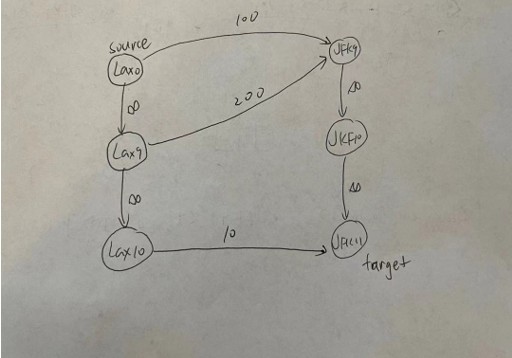 source
100
Lax0
JFK9
∞
200
∞
Lax9
JKF10
∞
∞
Lax10
10
JFK11
target